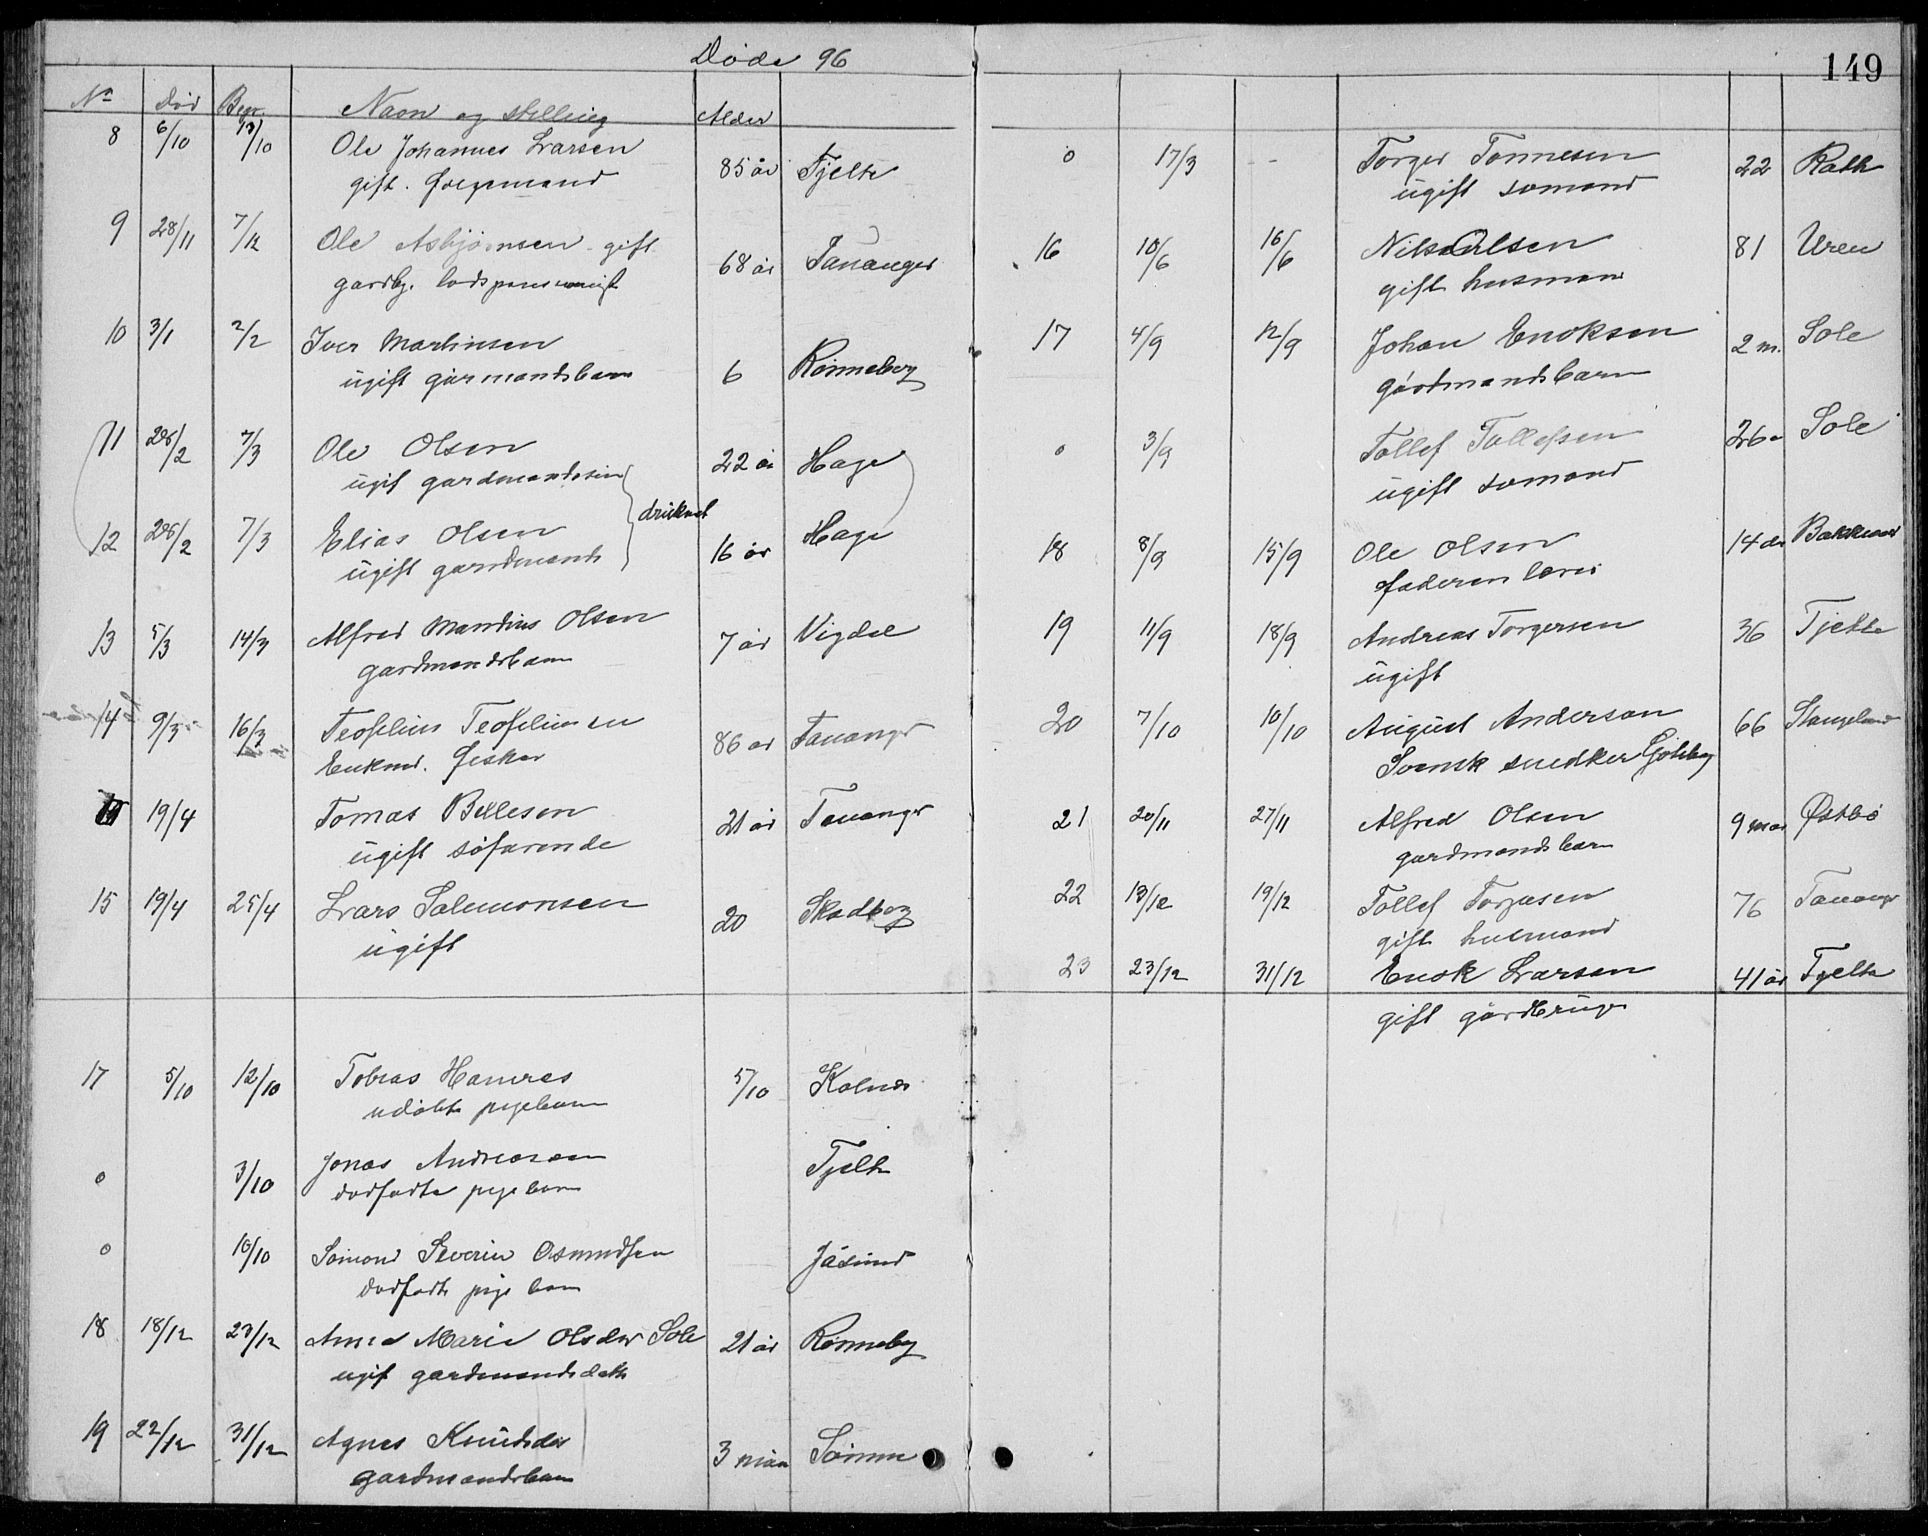 Døde 96
149
No Død Begr. Navn og stilling Alder
8 6/10 13/10 Ole Johannes Larsen 85 år Tjelte
gift.
9 28/11 7/12 Ole Asbjørnsen gift 68 år Tananger
gardbg.
10 3/1 2/2 Iver Martinsen 6 Rønneberg
ugift gårmandsbarn
11 28/2 7/3 Ole Olsen 22 år Hage
ugif gardmandssøn
druknet
12 28/2 7/3 Elias Olsen 16 år Hage
ugift gardmands
13 5/3 14/3 Alfred Mandius Olsen 7 år Vigdel
gardmandsbarn
14 9/3 16/3 Teofelius Teofeliussen 86 år Tananger
Enkmd. fisker
19/4 Tomas Bellesen 21 år Tananger
ugift søfarende
15 19/4 25/4 Lars Salemonsen 20 Skadberg
ugift
17 5/10 12/10 Tobias Hamres 5/10 Kolnes
udøbt pigebarn
0 3/10 Jonas Andreasen Tjelte
dødfødte pigebarn
0 10/10 Severin Osmundsen Jåsund
dødfødt pige barn
18 18/12 23/12 Anna Marie Olsdtr Sole 21 år Rønneberg
ugif gardmandsdatter
19 22/12 31/12 Agnes Knudsdtr 3 mån Sømme
gardmandsbarn
0 17/3 - Torger Tønnesen 22 Roth
ugift sømand
16 10/6 16/6 Nils Olsen 81 Uren
gift husmand
17 4/9 12/9 Johan Enoksen 2 m. Sole
gårdmandsbarn
0 3/9 Tollef Tollefsen 26 Sole
ugift sømand
18 8/9 15/9 Ole Olsen 14 da
faderen lærer
19 11/9 18/9 Andreas Torgersen 36 Tjelte
ugift
20 7/10 10/10 August Anderson 66 Stangeland
Svensk snedker Göteborg
21 20/11 27/11 Alfred Olsen 9 mar Østbø
gardmandsbarn
22 13/12 19/12 Tollef 76 Tananger
gift husmand
23 23/12 31/12 Enok Larsen 41 år Tjelte
gift gårdbruger